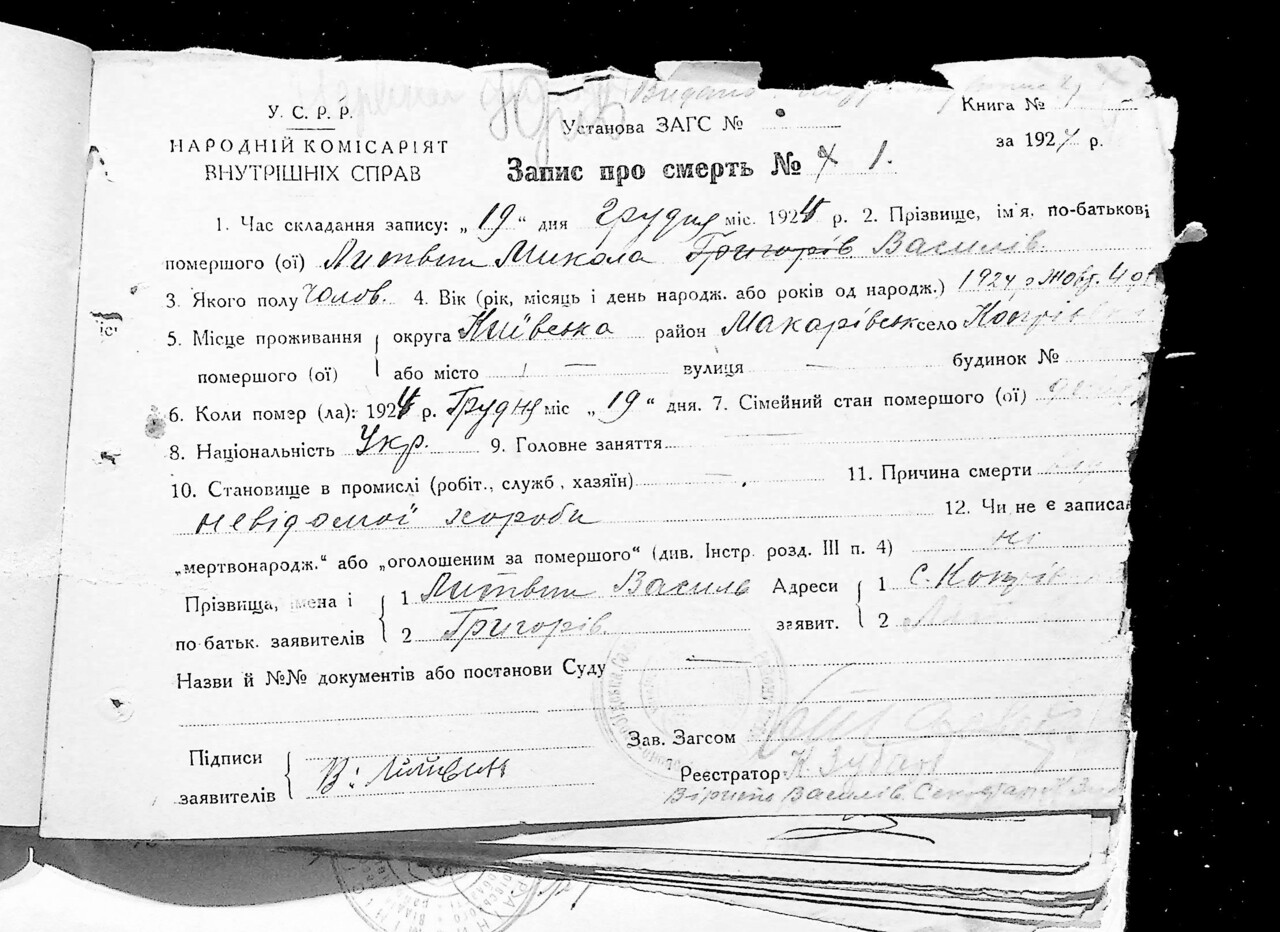 Видано
У. С. Р. Р.
НАРОДНІЙ КОМІСАРІЯТ
ВНУТРІШНІХ СПРАВ
Установа ЗАГС №
Книга №
за 1924 р.
Запис про смерть № 1.
1. Час складання запису: „ 19 “ дня Грудня міс. 1924 р. 2. Прізвище, ім'я, по-батькові
помершого (ої) Литвин Микола Григорів Василів
3. Якого полу Чолов. 4. Вік (рік, місяць і день народж. або років од народж.) 1924 р Жовт. 4
5. Місце проживання округа Київська район Макарівськ село
помершого (ої) або місто — вулиця — будинок №
6. Коли помер (ла): 1924 р. Грудня міс „ 19 “ дня. 7. Сімейний стан помершого (ої)
8. Національність Укр. 9. Головне заняття
10. Становище в промислі (робіт., служб, хазяїн) — 11. Причина смерти
невідомої хороби 12. Чи не є записа
„мертвонародж.“ або „оголошеним за помершого“ (див. Інстр. розд. III п. 4) ні
Прізвища, імена і 1 Литвин Василь Адреси 1 с.
по батьк. заявителів 2 Григорів. заявит. 2
Назви й №№ документів або постанови Суду —
Зав. Загсом
Підписи
заявителів В: Литвин
Реєстратор Н Зубан
Вірить Василів. Секретар